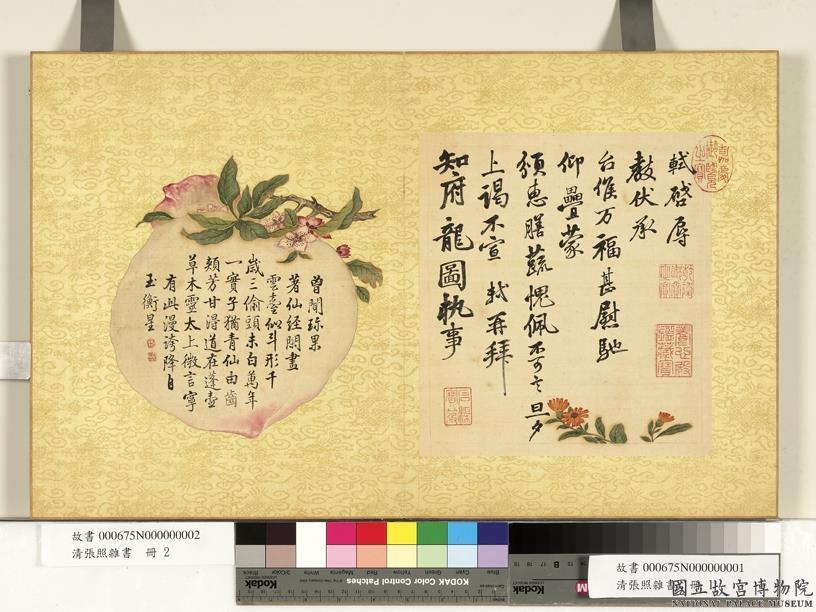 軾啓辱
教伏承
台候万福甚慰馳
仰疊蒙
頒惠膳蔬愧佩不可言旦夕
上謁不宣 軾再拜
知府龍圖執事
曾聞珎果
著仙經閬畫
雲臺似斗形千
歲三偷頭未白萬年
一實子猶青仙由齒
頰芳甘淂道在蓬壺
草木靈太上微言寧
有此漫誇降自
玉衡星
嘉慶御覽之寶
故書 000675N000000002
清張照雜書 冊 2
故書 000675N000000001
清張照雜書 冊 1
KODAK Color Control Patches
Blue
Cyan
Green
Yellow
Red
Magenta
White
3/Color
Black
國立故宮博物院
NATIONAL PALACE MUSEUM